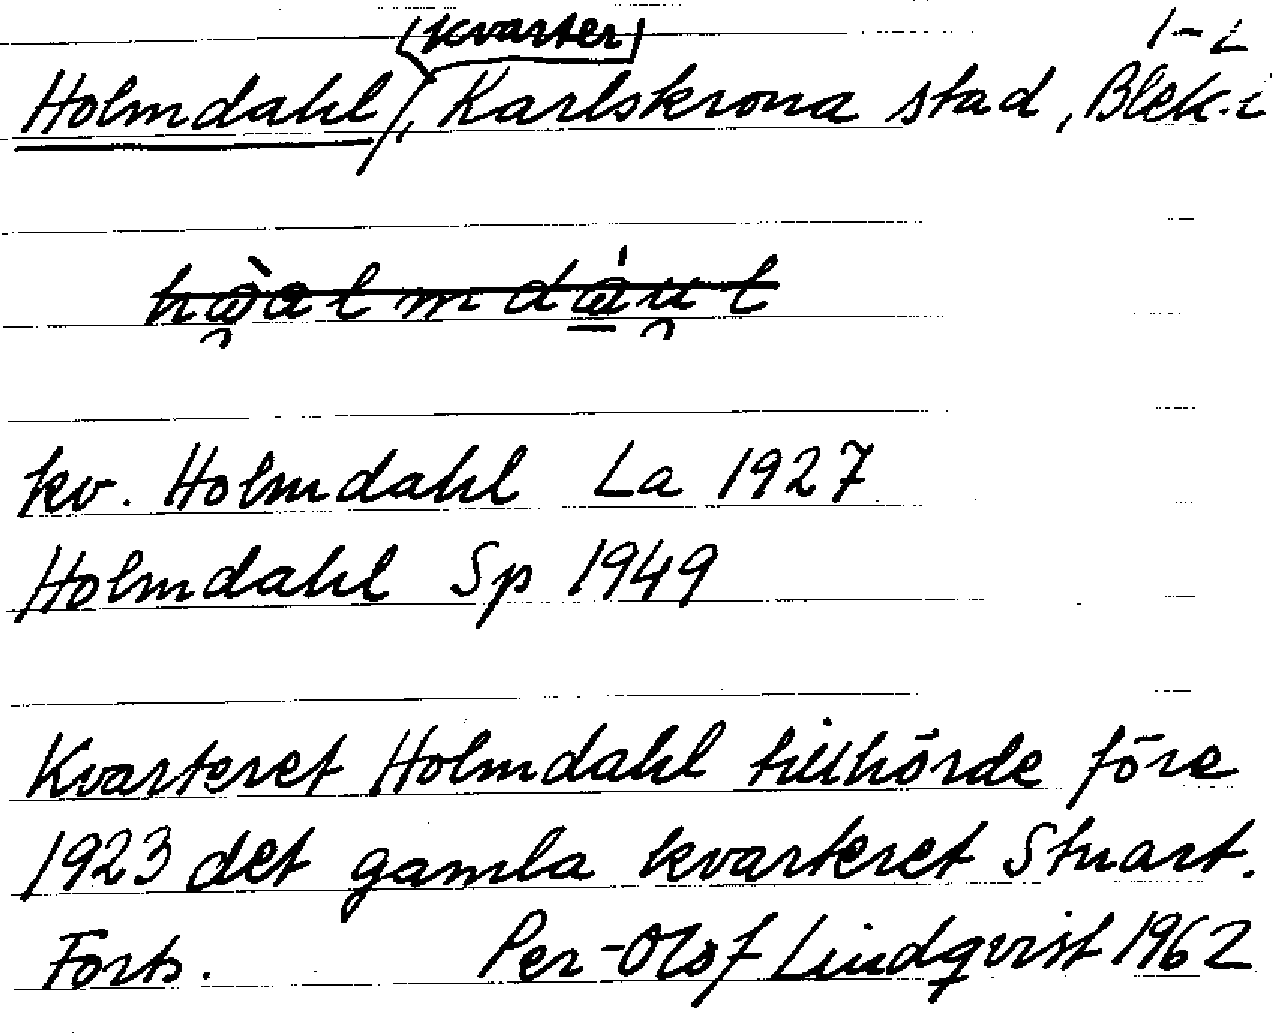 (kvarter) 1-2
Holmdahl/, Karlskrona stad, Blek.i
kv. Holmdahl La 1927
Holmdahl Sp 1949
Kvarteret Holmdahl tillhörde före
1923 det gamla kvarteret Stuart.
Forts. Per-Olof Lindqvist 1962